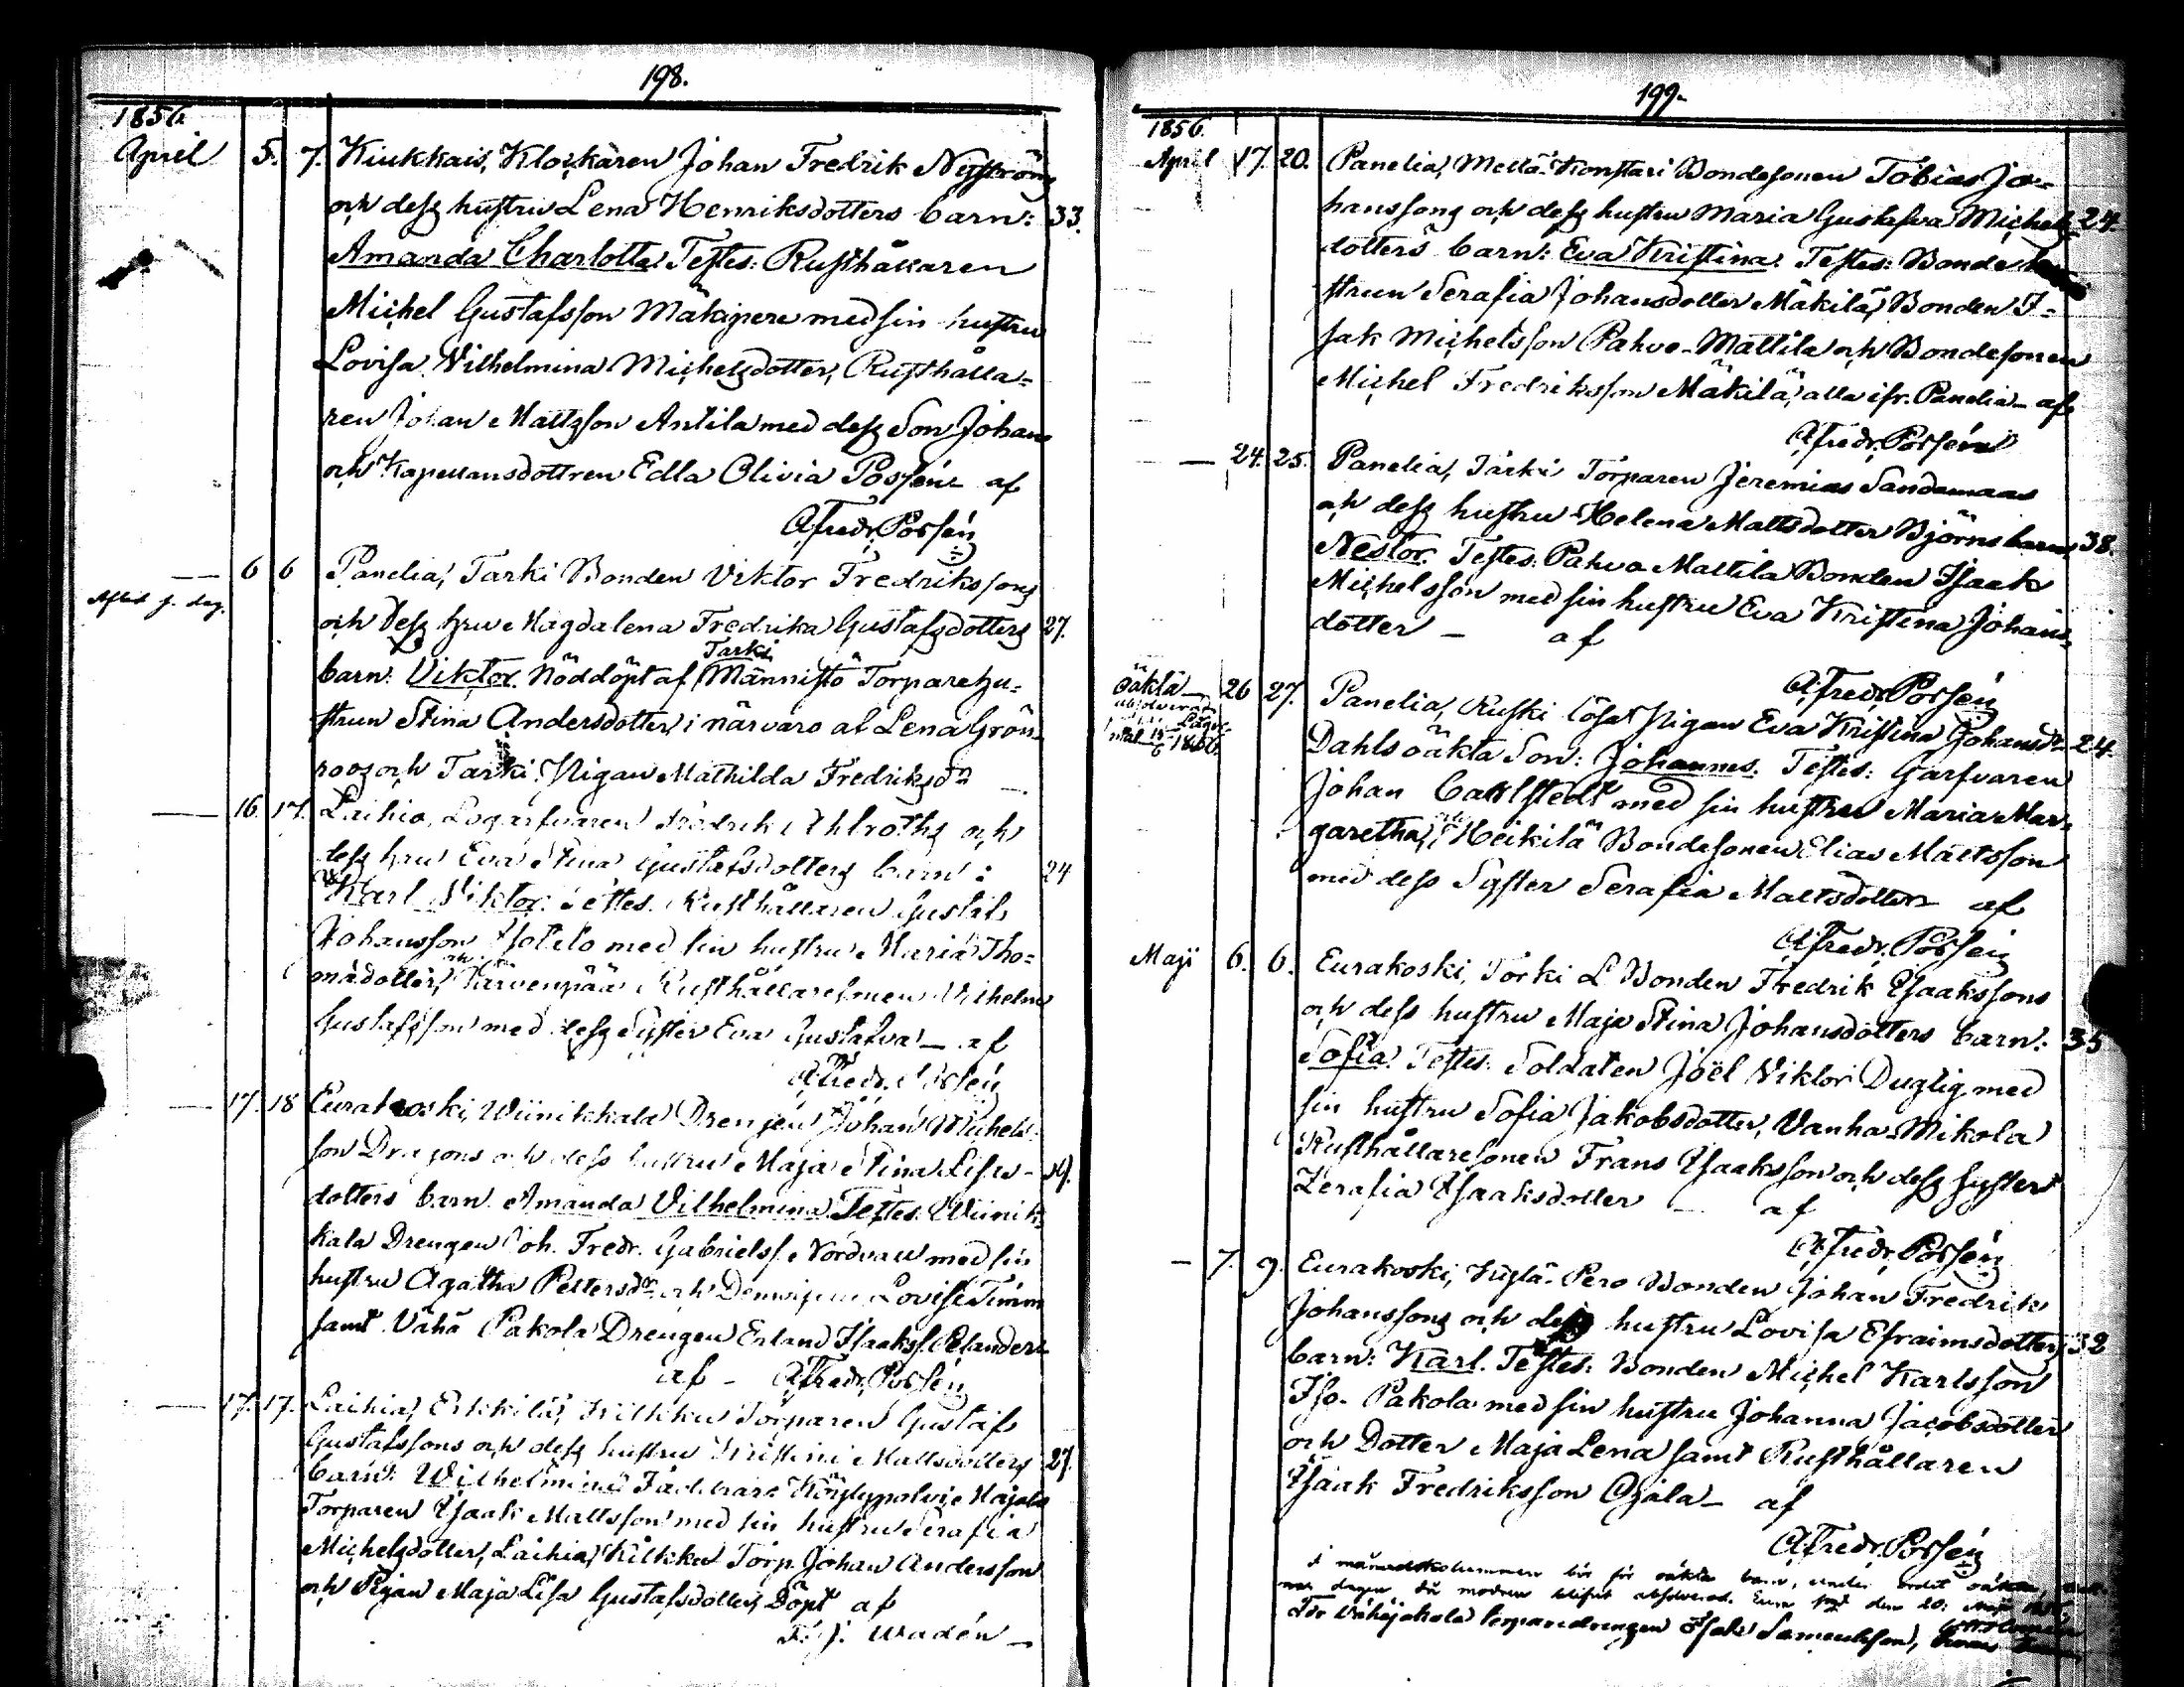 198.
1856.
April 5. 7. Kiukkais, Klockaren Johan Fredrik Nyström
och dess hustru Lena Henriksdotters barn: 33.
Amanda Charlotta. Testes: Rusthållaren
Michel Gustafsson Mäkipere med sin hustru
Lovisa Wilhelmina Michelsdotter, Rusthålla=
ren Johan Mattsson Antila med dess Son Johan
och Kapellansdottren Edla Olivia Possén af
A. Fredr. Possén
— 6 6 Panelia, Tarki Bonden Viktor Fredrikssons
och dess hru Magdalena Fredrika Gustafsdotters 27.
Tarki
barn: Viktor. Nöddöpt af Männistö Torparehu=
strun Stina Andersdotter, i närvaro af Lena Grön=
roos och Tarki Pigan Mathilda Fredriksdr —
— 16. 17. Laihia, Logarfvaren Fredrik Ahlroths och
dess hru Eva Stina Gustafsdotters barn: 24
Karl Viktor. Testes. Rusthållaren Gustaf
Johansson med sin hustru Maria Tho=
mädotter, och Järvenpää Rusthållaresonen Vilhelm
Gustafsson med dess Syster Eva Gustafva — af
A. Fredr. Possén
— 17. 18 Eurakoski, Wiinikkala Drengen Johan Michels=
son Dragons och dess hustru Maja Stina
dotters barn Amanda Vilhelmina. Testes: Wiinik=
kala Drengen Joh. Fredr. Gabrielss. Nordvall med sin
hustru Agatha Pettersdr och Lovisa Timm
samt Vähä Pakola Drengen Erland Isakss. Elander
af — A. Fredr. Possén
— 17. 17. Laihia, Erkkilä, Kilkku Torparen Gustaf
Gustafssons och dess hustru Kristina Mattsdotters 27.
barn: Wilhelmina Faddrar: Köylypolvi
Torparen Isaak Mattsson med sin hustru Serafia
Michelsdotter, Laihia, Kilkku Torp. Johan Andersson
och Pigan Maja Lisa Gustafsdotter, Döpt af
F. J. Wadén —
199.
1856.
April 17. 20. Panelia, Mellä-Konstari Bondesonen Tobias Jo=
hanssons och dess hustru Maria Gustafva Michels= 24.
dotters barn: Eva Kristina. Testes: Bonde
strun Serafia Johansdotter Mäkilä, Bonden I=
sak Michelsson Pahvo-Mattila och Bondesonen
Michel Fredriksson Mäkilä, alla ifr. Panelia — af
A. Fredr. Possén
— 24. 25. Panelia, Tarki Torparen Jeremias Sandamaas
och dess hustru Helena Mattsdotter Björns barn 38.
Nestor. Testes: Pahvo Mattila Bonden Isaak
Michelsson med sin hustru Eva Kristina Johans=
dotter — af
A. Fredr. Possén
oäkta — 26 27. Panelia, Ruski lösa Pigan Eva Kristina Johansdr 24.
Dahls oäkta Son: Johannes. Testes: Garfvaren
Johan Carlstedt med sin hustru Maria Mar=
garetha, och Heikilä Bondesonen Elias Mattsson
med dess Syster Serafia Mattsdotter af
A. Fredr. Possén
Maji 6. 6. Eurakoski, Torki L Bonden Fredrik Isaakssons
och dess hustru Maja Stina Johansdotters barn: 35
Sofia. Testes: Soldaten Joël Viktor Duglig med
sin hustru Sofia Jakobsdotter, Vanha-Mikola
Rusthållaresonen Frans Isaaksson och dess syster
Zerafia Isaaksdotter — af
A. Fredr. Possén
— 7. 9. Eurakoski, Pero Bonden Johan Fredrik
Johanssons och dess hustru Lovisa Efraimsdotters 32
barn: Karl. Testes: Bonden Michel Karlsson
Iso-Pakola med sin hustru Johanna Jacobsdotter
och Dotter Maja Lena samt Rusthållaren
Isaak Fredriksson Ojala — af
A. Fredr. Possén
I månadskolumnen bör för oäkta barn, under ordet oäkta,
dagen då modren blifvit absolverad.